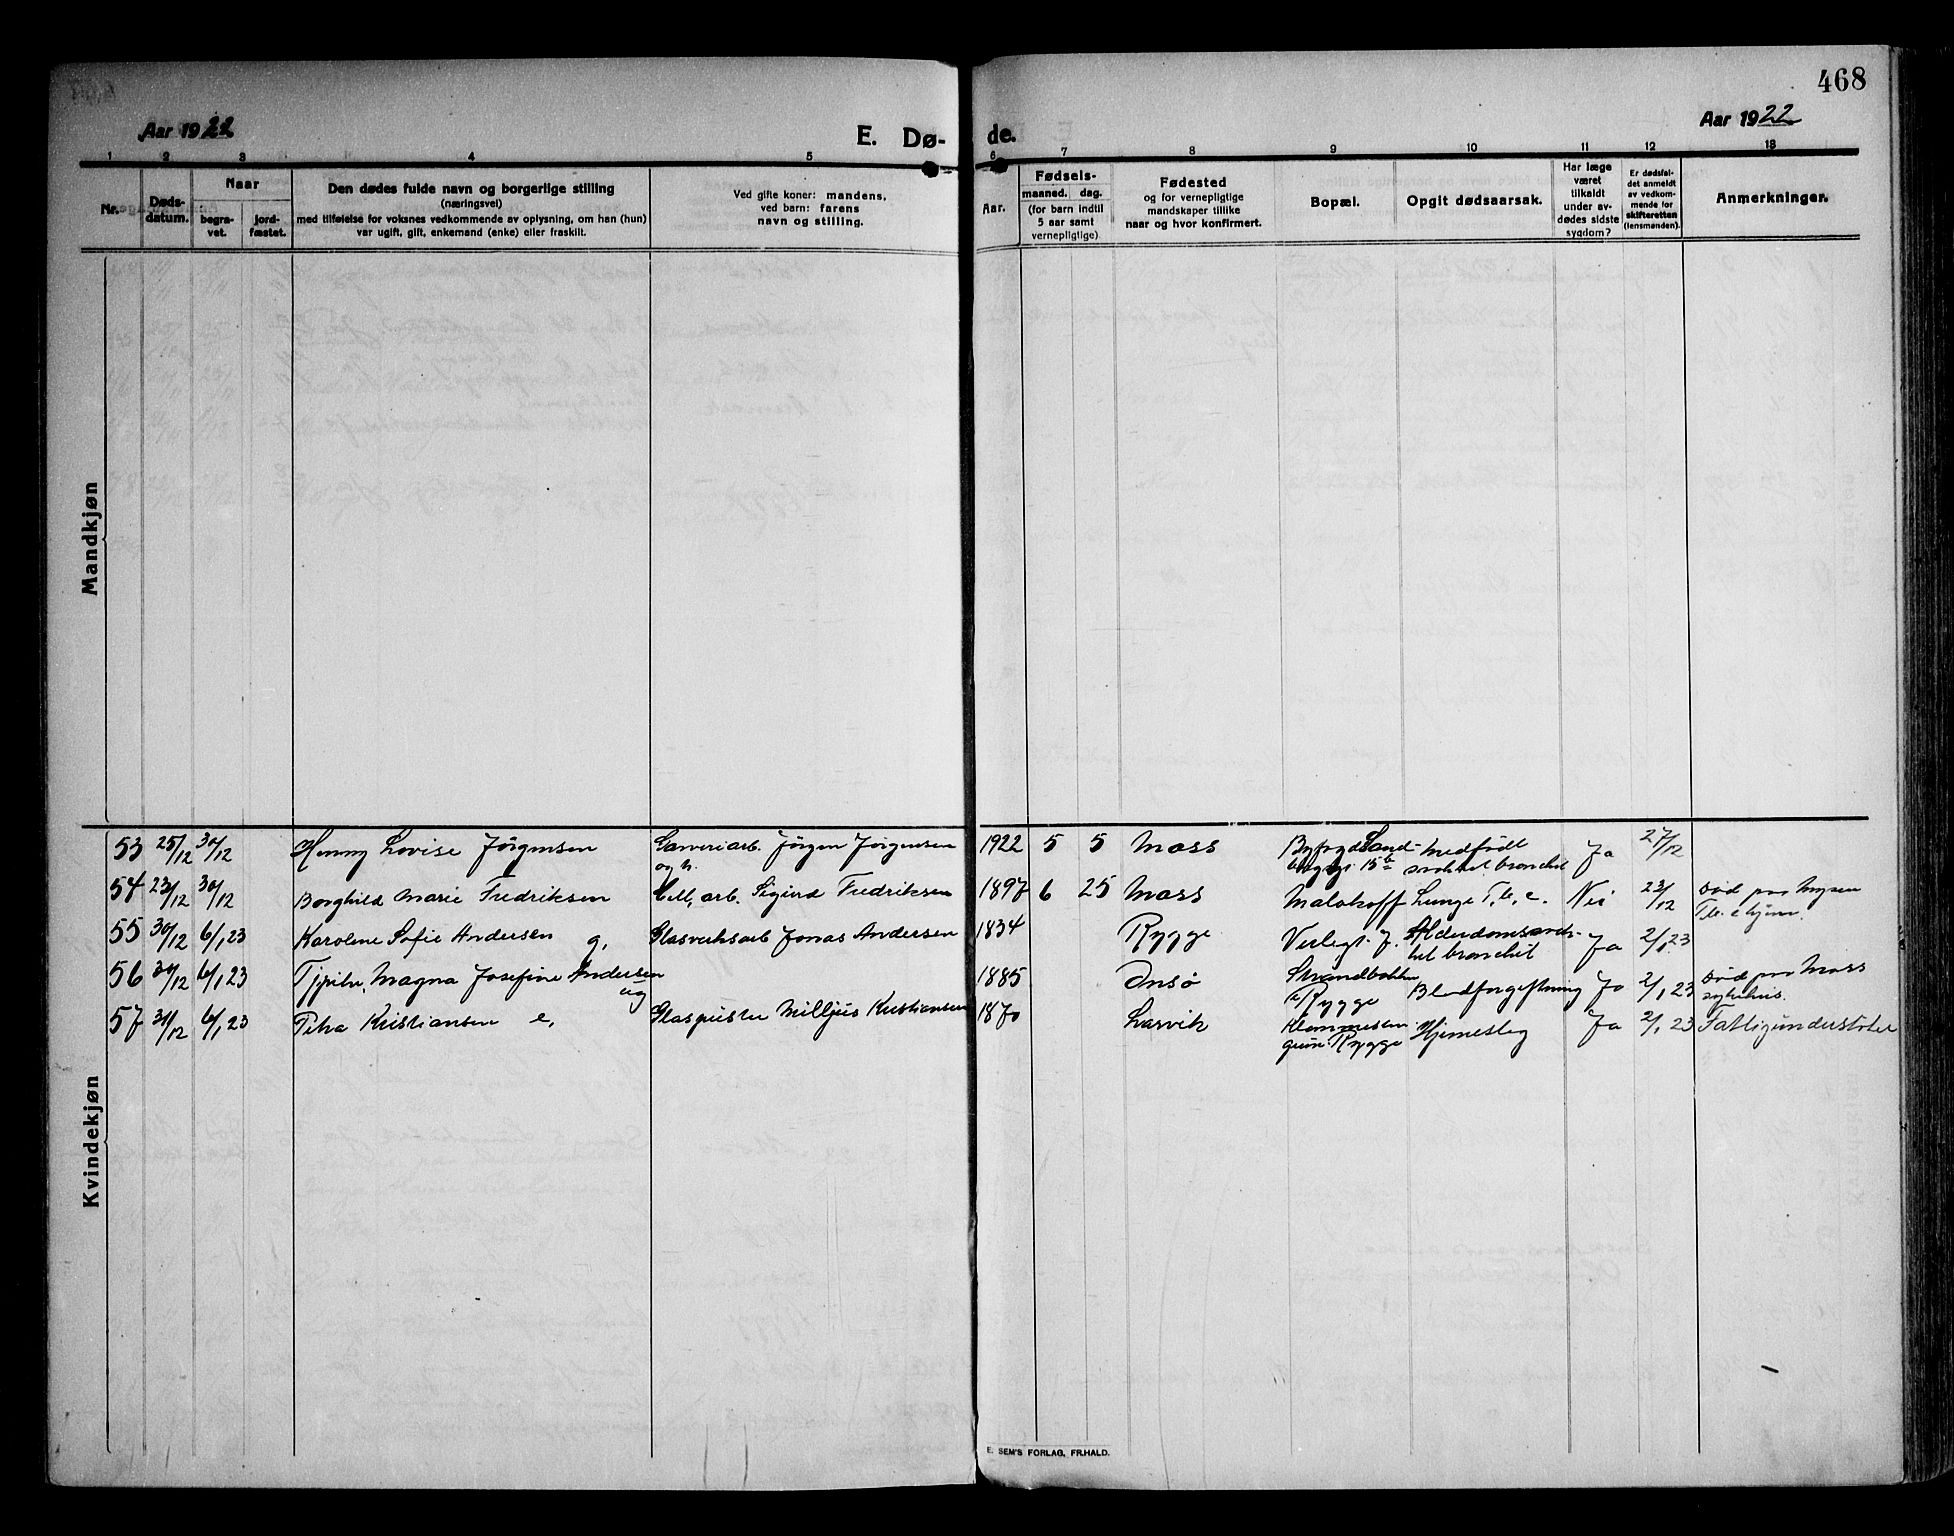 468
Aar 1922
E. Dø-
de.
Aar 1922
1 2 3 4 5 6 7 8 9 10 11 12 13
Nr.
Døds-
datum.
Naar
begra-
vet.
jord-
fæstet.
Den dødes fulde navn og borgerlige stilling
(næringsvei)
med tilføielse for voksnes vedkommende av oplysning, om han (hun)
var ugift, gift, enkemand (enke) eller fraskilt.
Ved gifte koner: mandens,
ved barn: farens
navn og stilling.
Aar.
Fødsels-
maaned. dag.
(for barn indtil
5 aar samt
vernepligtige)
Fødested
og for vernepligtige
mandskaper tillike
naar og hvor konfirmert.
Bopæl.
Opgit dødsaarsak.
Har læge
været
tilkaldt
under av-
dødes sidste
sygdom?
Er dødsfal-
det anmeldt
av vedkom-
mende for
skifteretten
(lensmanden).
Anmerkninger.
Mandkjøn
Kvindekjøn
53 25/12 30/12 Henny Lovise Jörgensen Garveriarb. Jörgen Jörgensen 1922 5 5 Moss Medfödt Ja 27/12
og h. 15 b bronchit
54 23/12 30/12 Borghild Marie Fredriksen Cell. arb. Sigurd Fredriksen 1897 6 25 Moss Malakoff Lunge T.b.c. Nei 23/12 Död paa Mysen
Tb. c hjem.
55 30/12 6/1 23 Karoline Sofie Andersen g. Glasverksarb Jonas Andersen 1834 Rygge Verlegt. g. Alderdomssvak- Ja 2/1 23
het bronchit
56 30/12 6/1 23 Magna Josefine Andersen 1885 Onsö Strandbakken Blodforgiftning Ja 2/1 23 Död paa Moss
ug Rygge sykehus.
57 31/12 6/1 23 Petra Kristiansen e. Glaspuster Milljus Kristiansen 1870 Larvik Hjerneslag Ja 2/1 23 Fattigunderstöttet
Rygge
E. SEM'S FORLAG, FR.HALD.